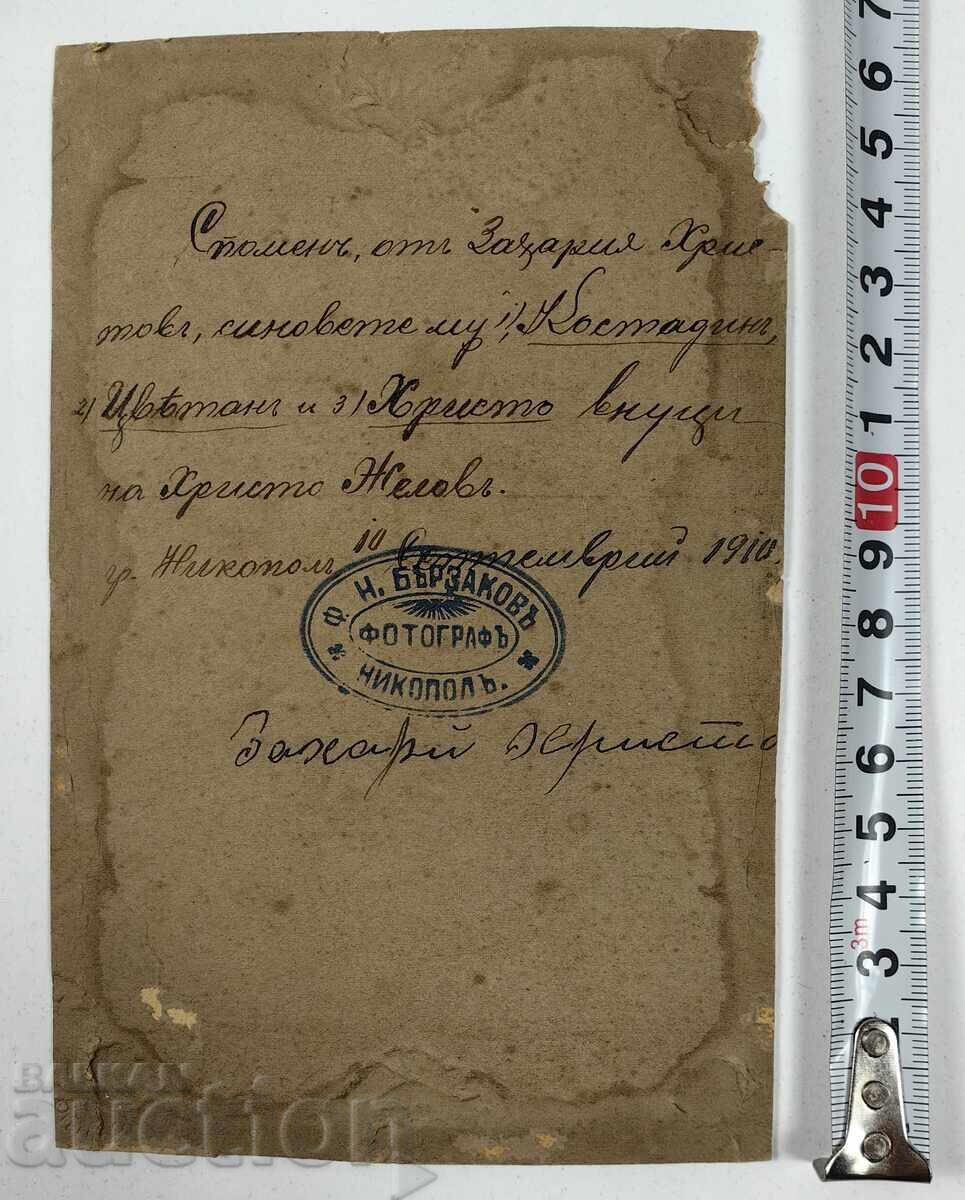 Споменъ, отъ Захария Хрис-
товъ, синовете му 1) Костадинъ,
2) Цвѣтанъ и 3) Христо внуци
на Христо Желовъ.
гр. Никополъ 10 Септемврий 1910.
Ф. Н. БЪРЗАКОВЪ
ФОТОГРАФЪ
НИКОПОЛЪ.
Захарй Христо
BALKAN
auction
7 6 5 4 3 2 1 10 9 8 7 6 5 4 3m 3